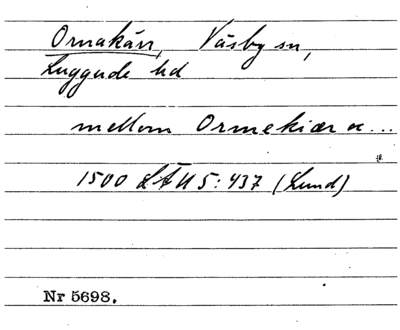 Ormakärr, Väsby sn,
Luggude hd
mellom Ormekiær oc ...
1500 LÄU 5:437 (Lund)
Nr 5698.